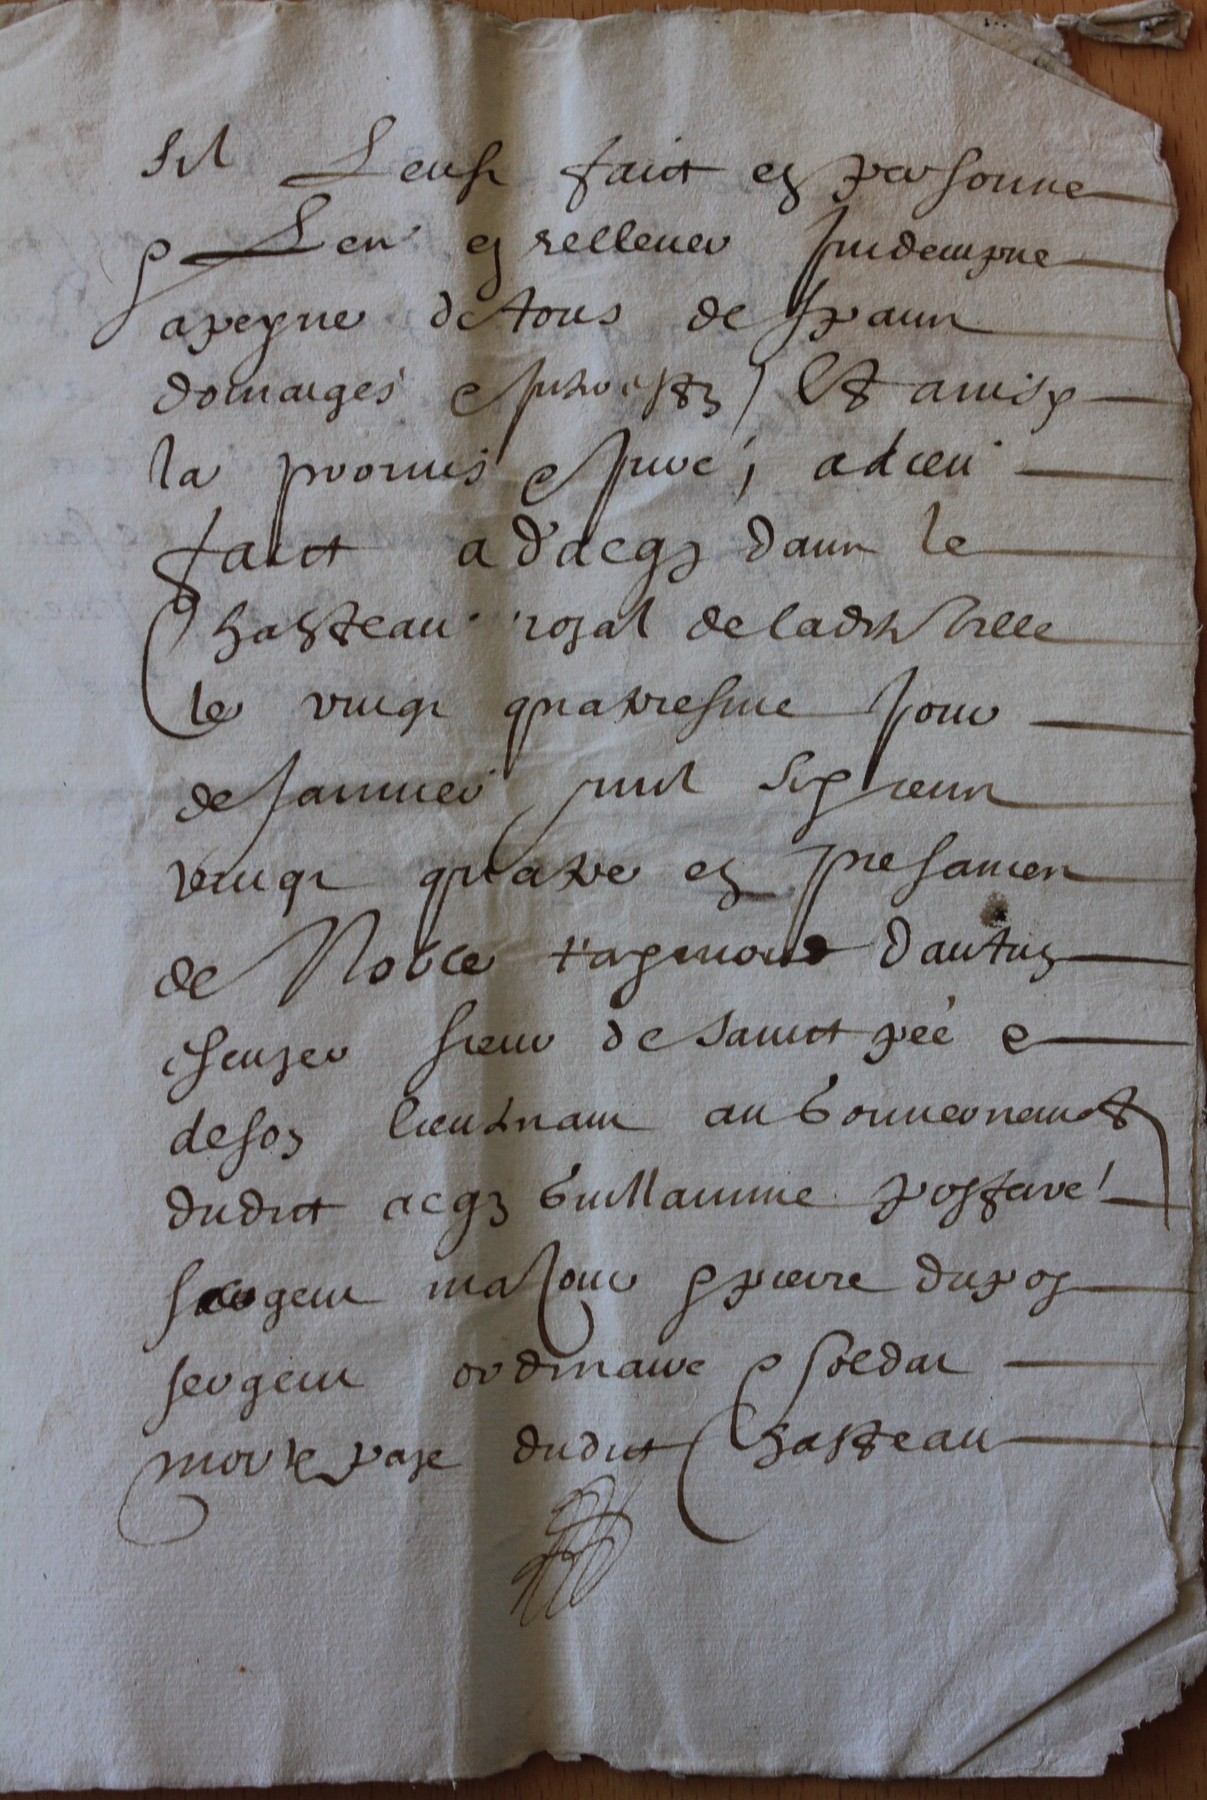 sil Leust faict en personne
& Len en rellever Indempne
a peyne de tous despaun
domaiges & Interestz / Et ainsy
la promis & Jure, a dieu
faict a d'acqz dans le
Chasteau royal de ladite ville
le vingt quatriesme Jour
de Janvier mil six cent
vingt quatre en presance
de Noble raymond dautuy
escuyer sieur de sainct peé &
deson lieutenant au Gouvernement
dudict acqz Guillaume
sergent maJour & pierre dupoy
sergent ordinaire & soldat
morte paye dudict Chasteau